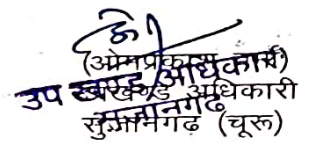 (ओमप्रकाश
उप खण्ड अधिकारी
उपखण्ड अधिकारी
सुजानगढ़
सुजानगढ़ (चूरू)